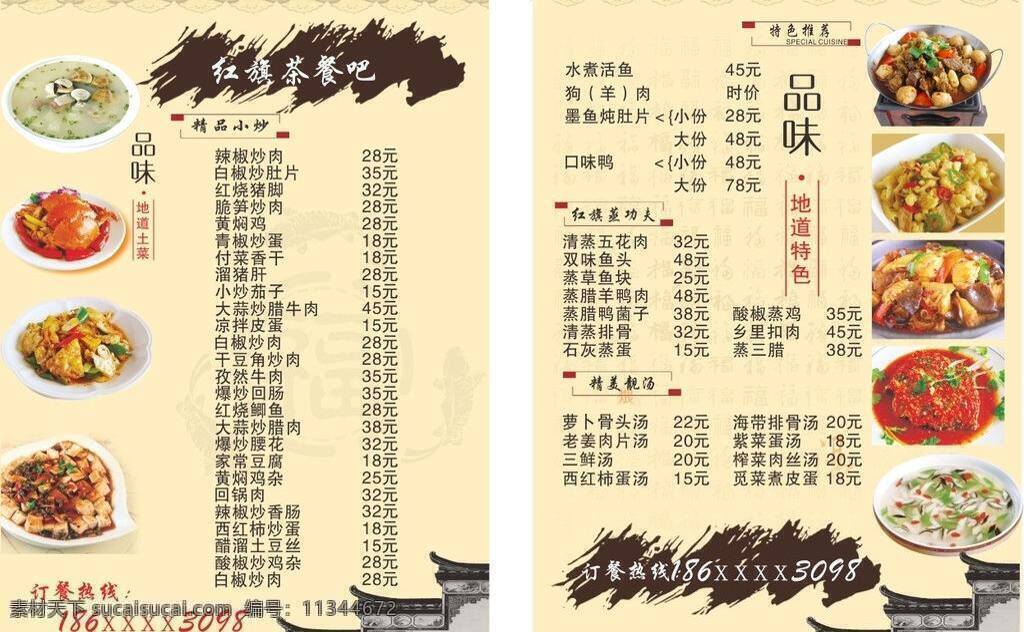 红旗茶餐吧
精品小炒
品味·地道土菜
辣椒炒肉 28元
白椒炒肚片 35元
红烧猪脚 32元
脆笋炒肉 28元
黄焖鸡 28元
青椒炒蛋 18元
付菜香干 18元
溜猪肝 28元
小炒茄子 15元
大蒜炒腊牛肉 45元
凉拌皮蛋 15元
白椒炒肉 28元
干豆角炒肉 28元
孜然牛肉 35元
爆炒回肠 35元
红烧鲫鱼 28元
大蒜炒腊肉 38元
爆炒腰花 32元
家常豆腐 18元
黄焖鸡杂 25元
回锅肉 32元
辣椒炒香肠 32元
西红柿炒蛋 18元
醋溜土豆丝 15元
酸椒炒鸡杂 28元
白椒炒肉 28元
订餐热线：
186XXXX3098
特色推荐
SPECIAL CUISINE
水煮活鱼 45元
狗（羊）肉 时价
墨鱼炖肚片<{小份 28元
大份 48元
口味鸭 <{小份 48元
大份 78元
品味·地道特色
红旗蒸功夫
清蒸五花肉 32元
双味鱼头 48元
蒸草鱼块 25元
蒸腊羊鸭肉 48元
蒸腊鸭菌子 38元 酸椒蒸鸡 35元
清蒸排骨 32元 乡里扣肉 45元
石灰蒸蛋 15元 蒸三腊 38元
精美靓汤
萝卜骨头汤 22元 海带排骨汤 20元
老姜肉片汤 20元 紫菜蛋汤 18元
三鲜汤 20元 榨菜肉丝汤 20元
西红柿蛋汤 15元 觅菜煮皮蛋 18元
订餐热线186XXXX3098
素材天下 sucaisucai.com 编号：11344672